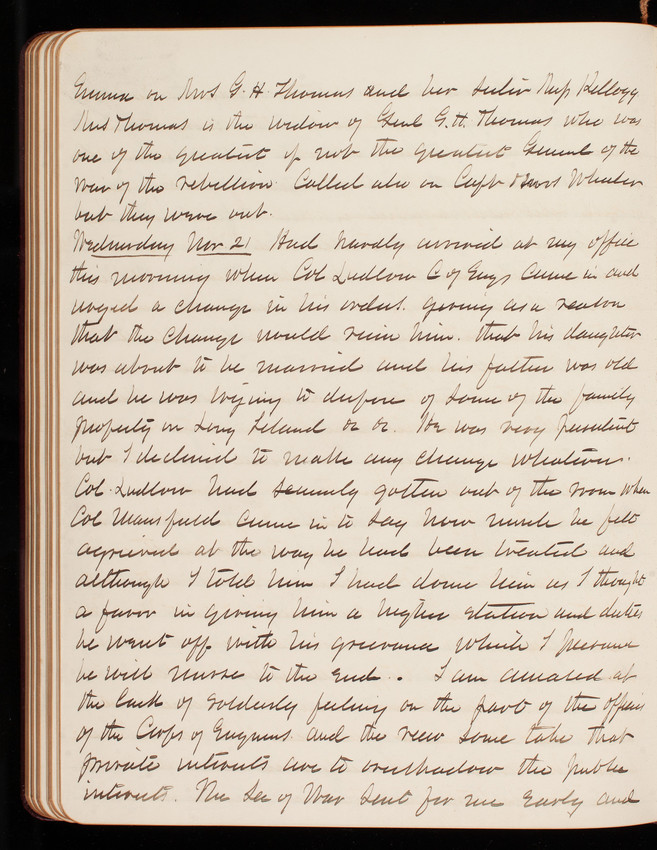 Emma on Mrs G. H. Thomas and her sister Miss Kellogg
Mrs Thomas is the widow of Genl G. H. Thomas who was
one of the greatest if not the greatest General of the
war of the rebellion. Called also on Capt & Mrs Wheeler
but they were out.
Wednesday Nov 21 Had hardly arrived at my office
this morning when Col Ludlow C of Engs came in and
urged a change in his orders. giving as a reason
that the change would ruin him. that his daughter
was about to be married and his father was old
and he was trying to dispose of some of the family
property on Long Island &c &c. He was very persistent
but I declined to make any change whatever.
Col. Ludlow had scarcely gotten out of the room when
Col Mansfield came in to say how much he felt
agrieved at the way he had been treated and
although I told him I had done him as I thought
a favor in giving him a higher station and duties
he went off with his grievance which I presume
he will nurse to the end. . I am amazed at
the lack of soldierly feeling on the part of the officers
of the Corps of Engineers and the view some take that
private interests are to overshadow the public
interests. The Sec of War sent for me early and